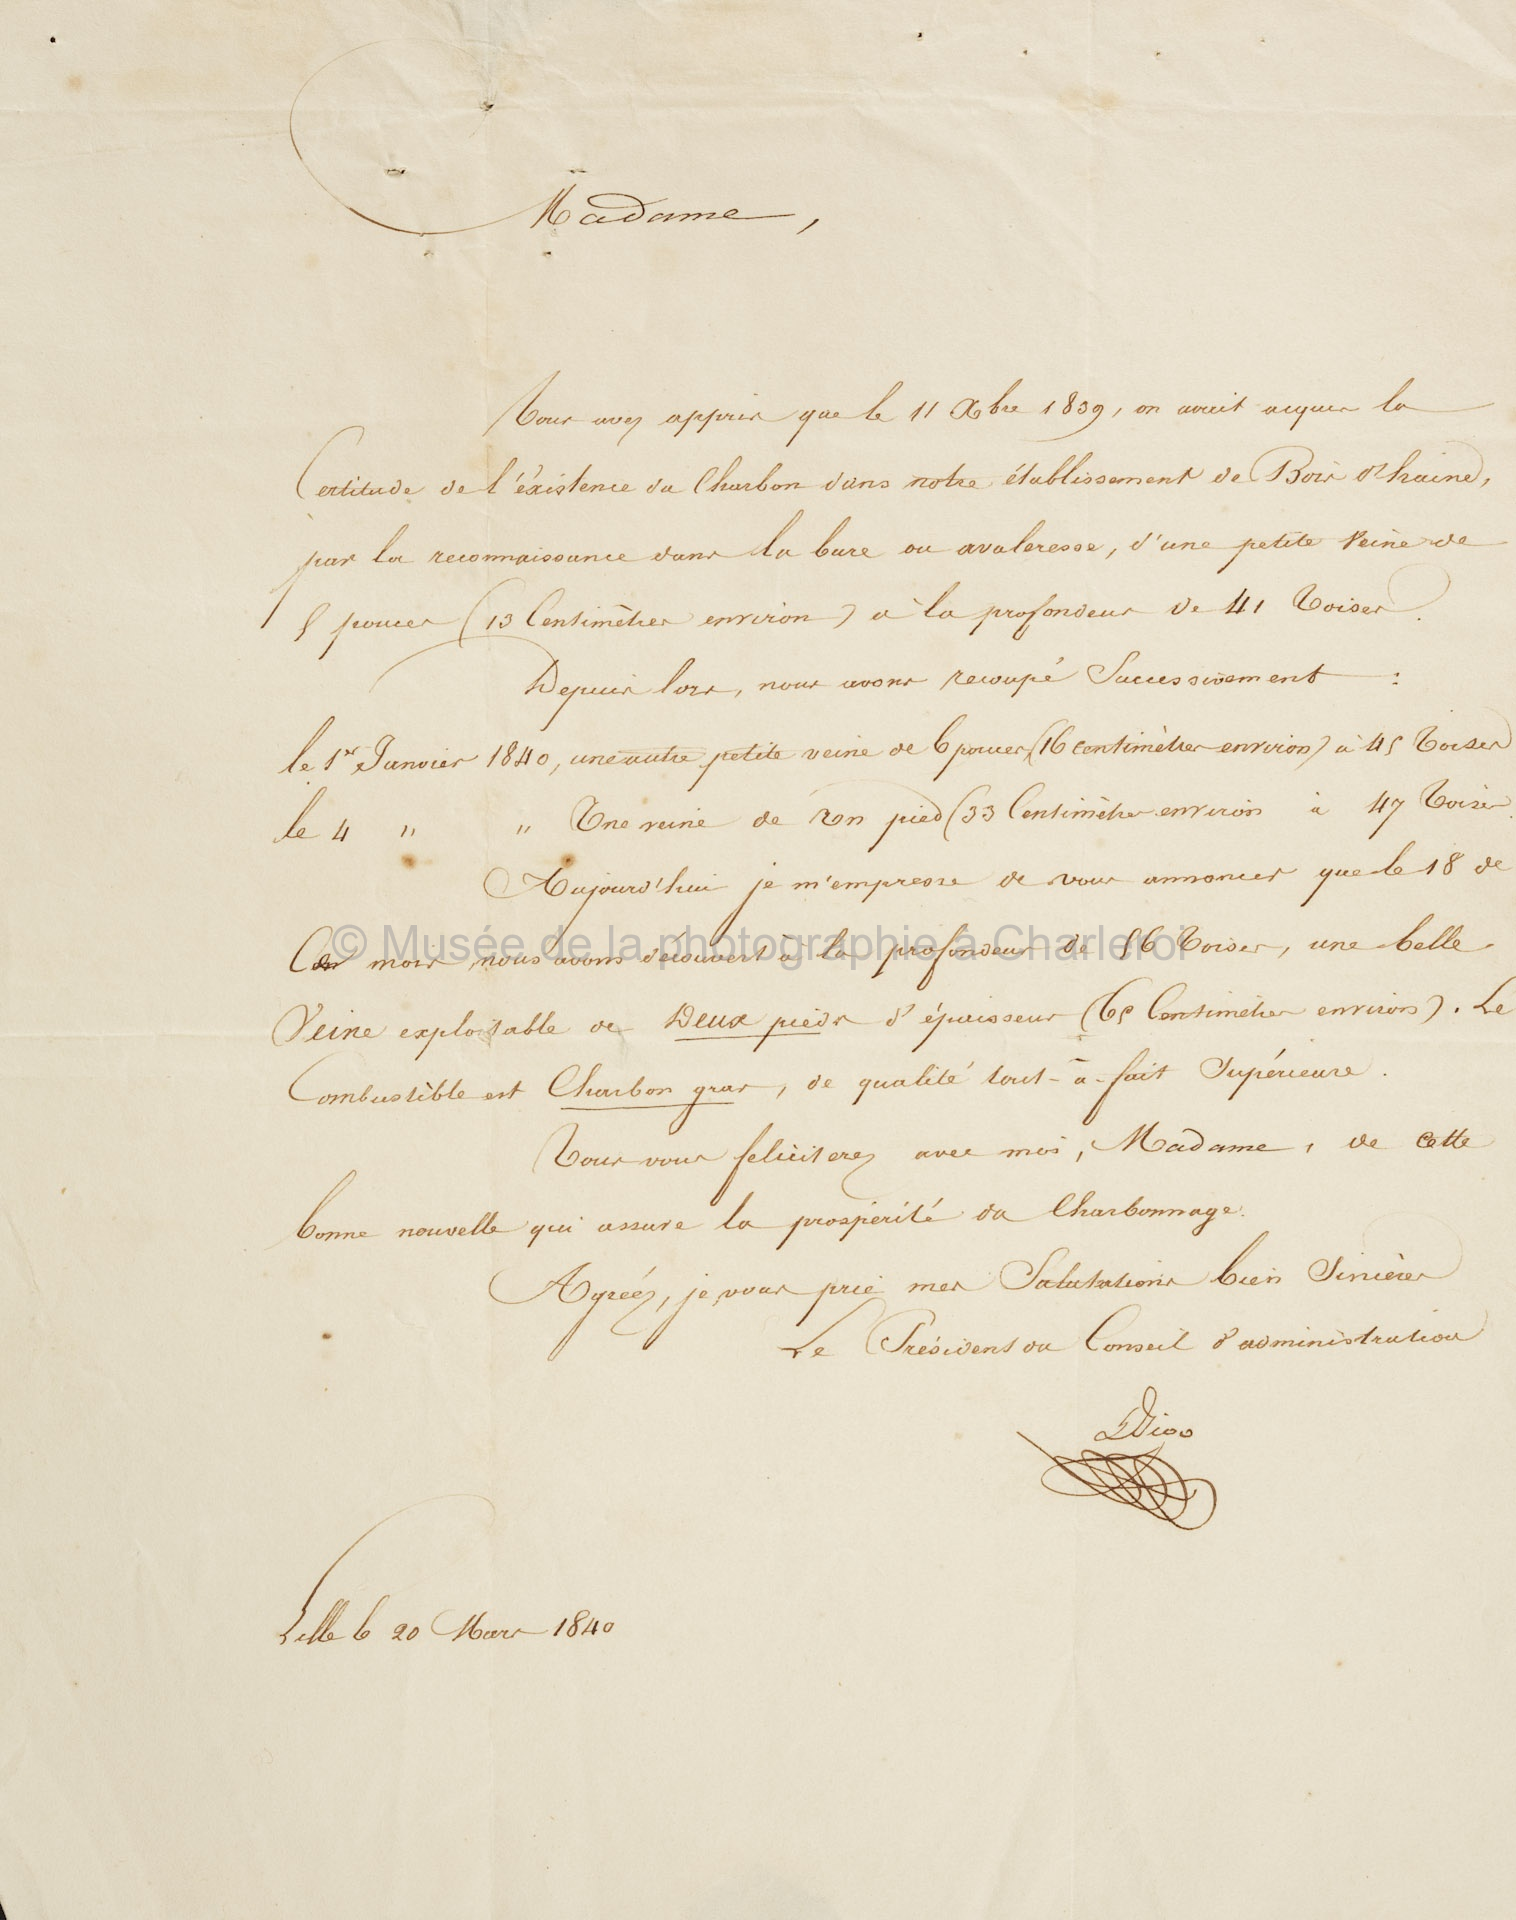 Madame,
Vous avez appris que le 11 Xbre 1839, on avait acquis la
Certitude de l'éxistence du Charbon dans notre établissement de Bois d'haine,
par la reconnaissance dans la bure ou avaleresse, d'une petite Veine de
5 pouces (13 Centimètres environ) à la profondeur de 41 Toises.
Depuis lors, nous avons recoupé Successivement :
le 1er Janvier 1840, une autre petite veine de 6 pouces (16 centimètres environ) à 45 Toises
le 4 " " Une veine de Un pied (33 Centimètres environ à 47 Toises.
Aujourd'hui je m'empresse de vous annoncer que le 18 de
Ce mois nous avons découvert à la profondeur de 56 Toises, une belle
© Musée de la photographie à Charleroi
Veine exploitable de Deux pieds d'épaisseur (65 Centimètres environ). Le
Combustible est Charbon gras, de qualité tout-à-fait Supérieure.
Vous vous feliciterez avec moi, Madame, de cette
bonne nouvelle qui assure la prospérité du Charbonnage.
Agréez, je vous prie mes Salutations bien Sincères
Le Président du Conseil d'administration
Lille le 20 Mars 1840